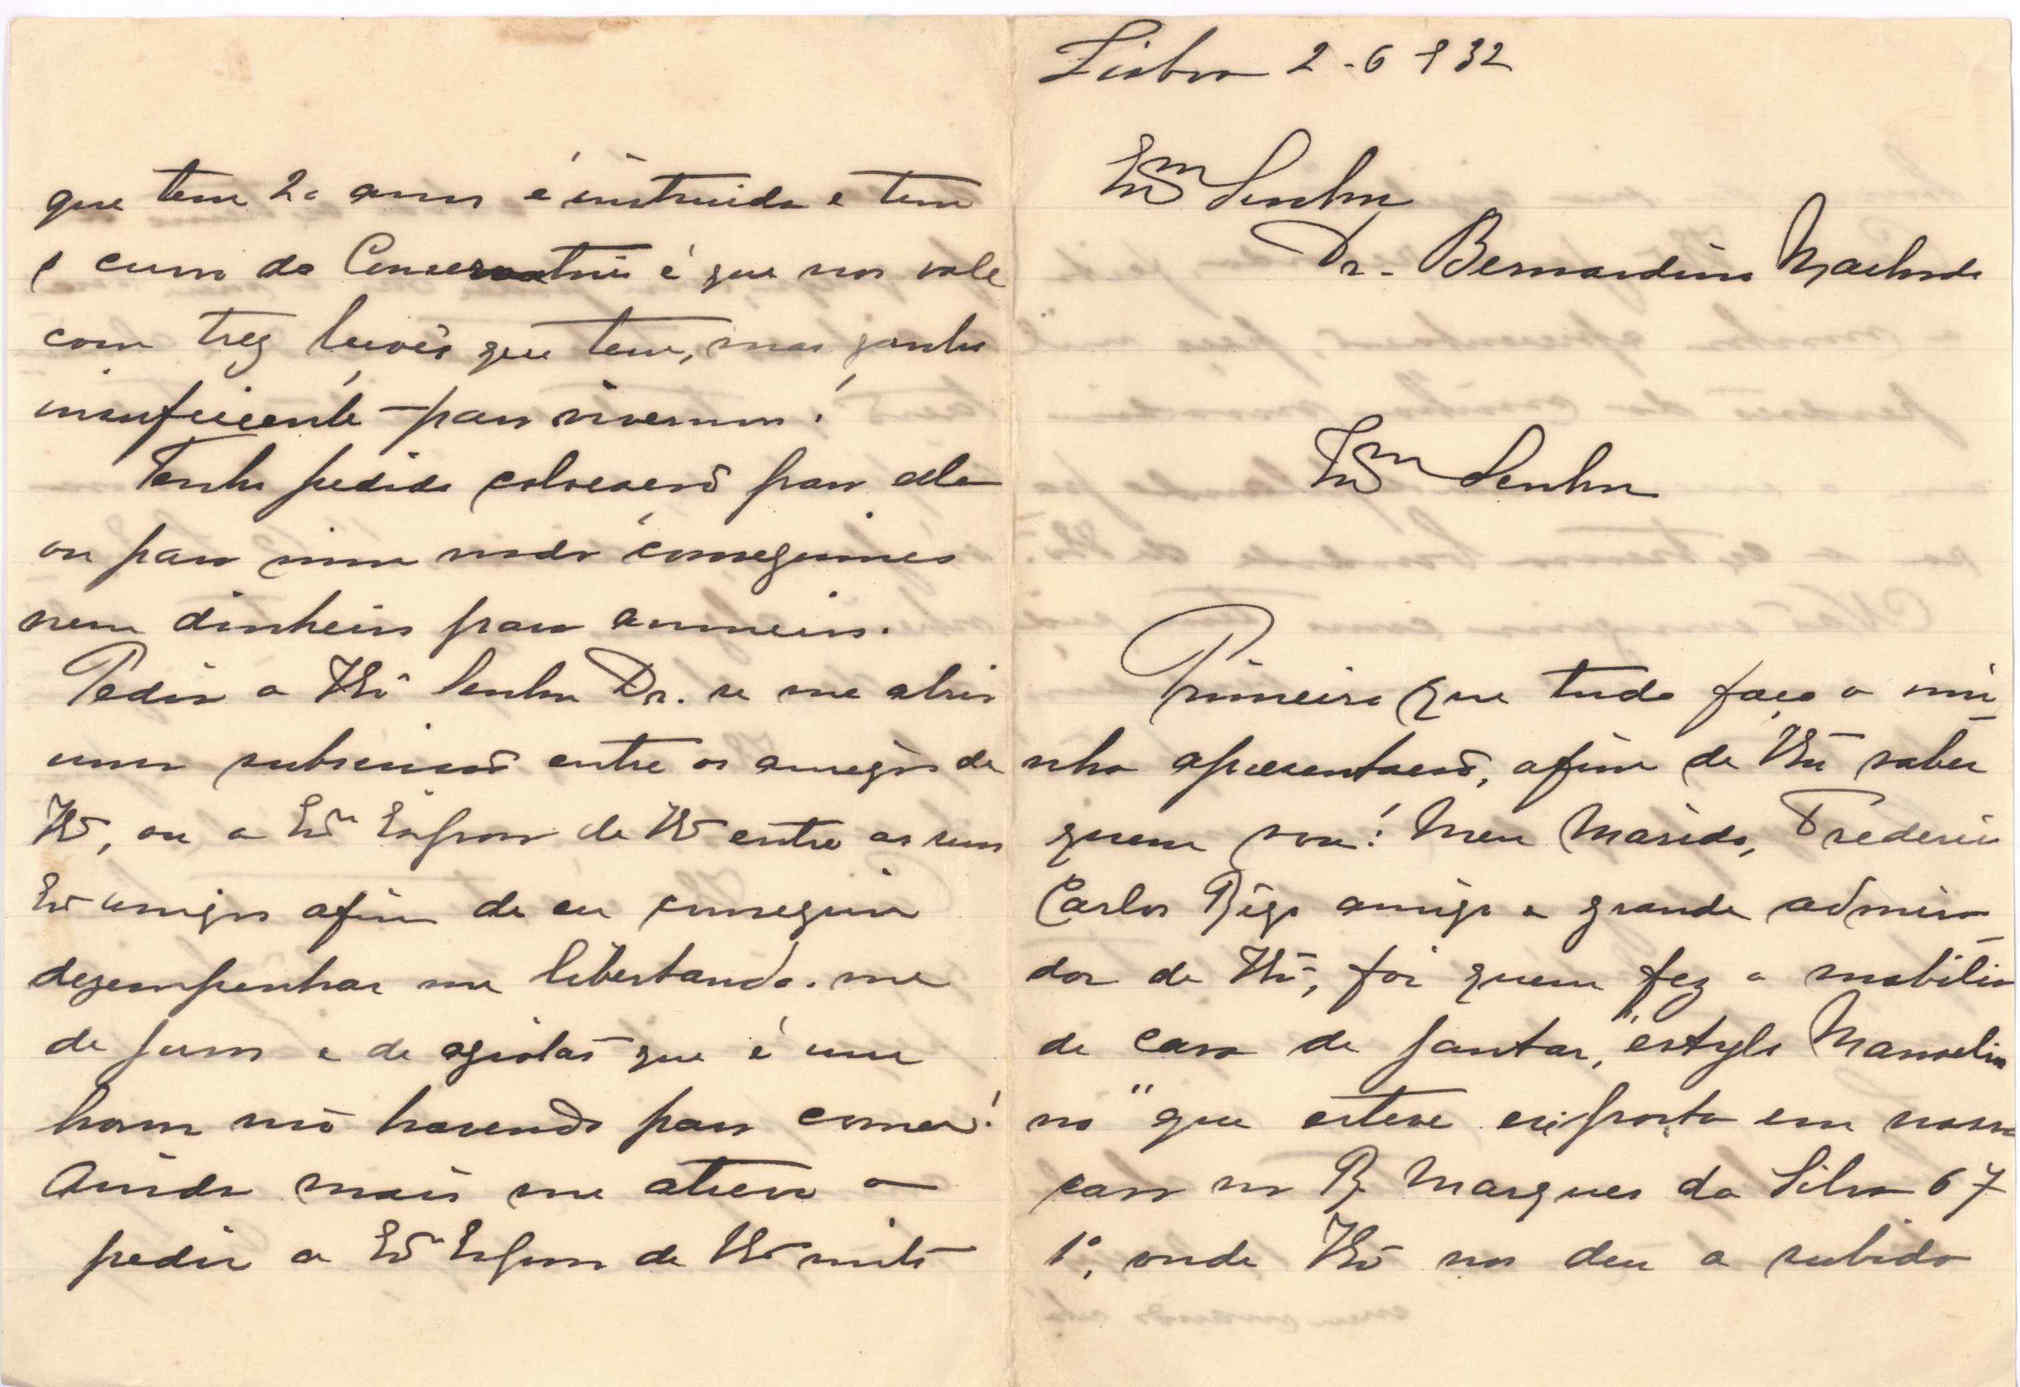 Lisboa 2-6-932
Exmo Senhor
Dr. Bernardino Machado
Exmo Senhor
Primeiro que tudo faço a mi-
nha apresentacão, afim de V Exª saber
quem sou! Meu Marido, Frederico
Carlos Rêgo amigo e grande admira-
dor de V Exª, foi quem fez a mobilia
de casa de jantar, "estylo Manoeli-
no" que esteve exposta em nossa
casa na R Marques da Silva 67
1º, onde V Exª nos deu a subida
que tem 20 annos é instruida e tem
o curso do Conservatorio é que nos vale
com trez licoês que tem, mas ganha
insuficiente para vivermos!
Tenho pedido colocacão para ela
ou para mim nada conseguimos
nem dinheiro para annuncios.
Pedia a V Exª Senhor Dr. se me abria
uma subscricão entre os amigos de
V Exª, ou a Exma Esposa de V Exª entre as suas
Exas amigas afim de eu conseguir
dezempenhar me libertando-me
de juros e de agiotas que é um
horror não havendo para comer!
Ainda mais me atrevo a
pedir a Exma Esposa de V Exª muito